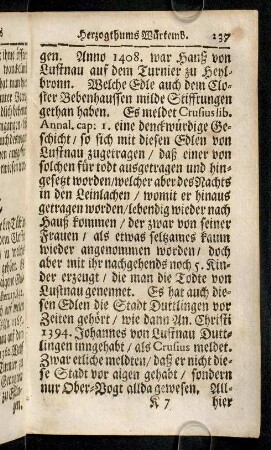 Herzogthums Würtemb. 237
gen. Anno 1408. war Hanß von
Lustnau auf dem Turnier zu Heyl-
bronn. Welche Edle auch dem Clo-
ster Bebenhaussen milde Stifftungen
gethan haben. Es meldet Crusius lib.
Annal. cap: 1. eine denckwürdige Ge-
schicht / so sich mit diesen Edlen von
Lustnau zugetragen / daß einer von
solchen für todt ausgetragen und hin-
gesetzt worden / welcher aber des Nachts
in den Leinlachen / womit er hinaus
getragen worden / lebendig wieder nach
Hauß kommen / der zwar von seiner
Frauen / als etwas seltzames kaum
wieder angenommen worden / doch
aber mit ihr nachgehends noch 5. Kin-
der erzeugt / die man die Todte von
Lustnau genennet. Es hat auch die-
sen Edlen die Stadt Duttlingen vor
Zeiten gehört / wie dann An. Christi
1394. Johannes von Lustnau Dutt-
lingen inngehabt / als Crusius meldet.
Zwar etliche meldten / daß er nicht die-
se Stadt vor aigen gehabt / sondern
nur Ober-Vogt allda gewesen. All-
K 7 hier